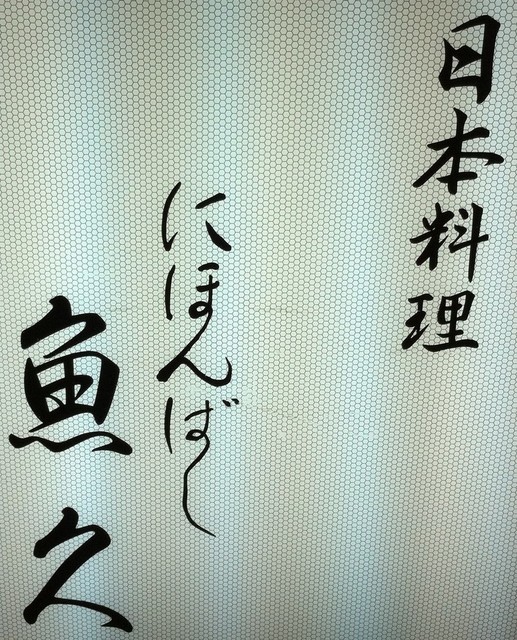 日本料理
にほんばし
魚久